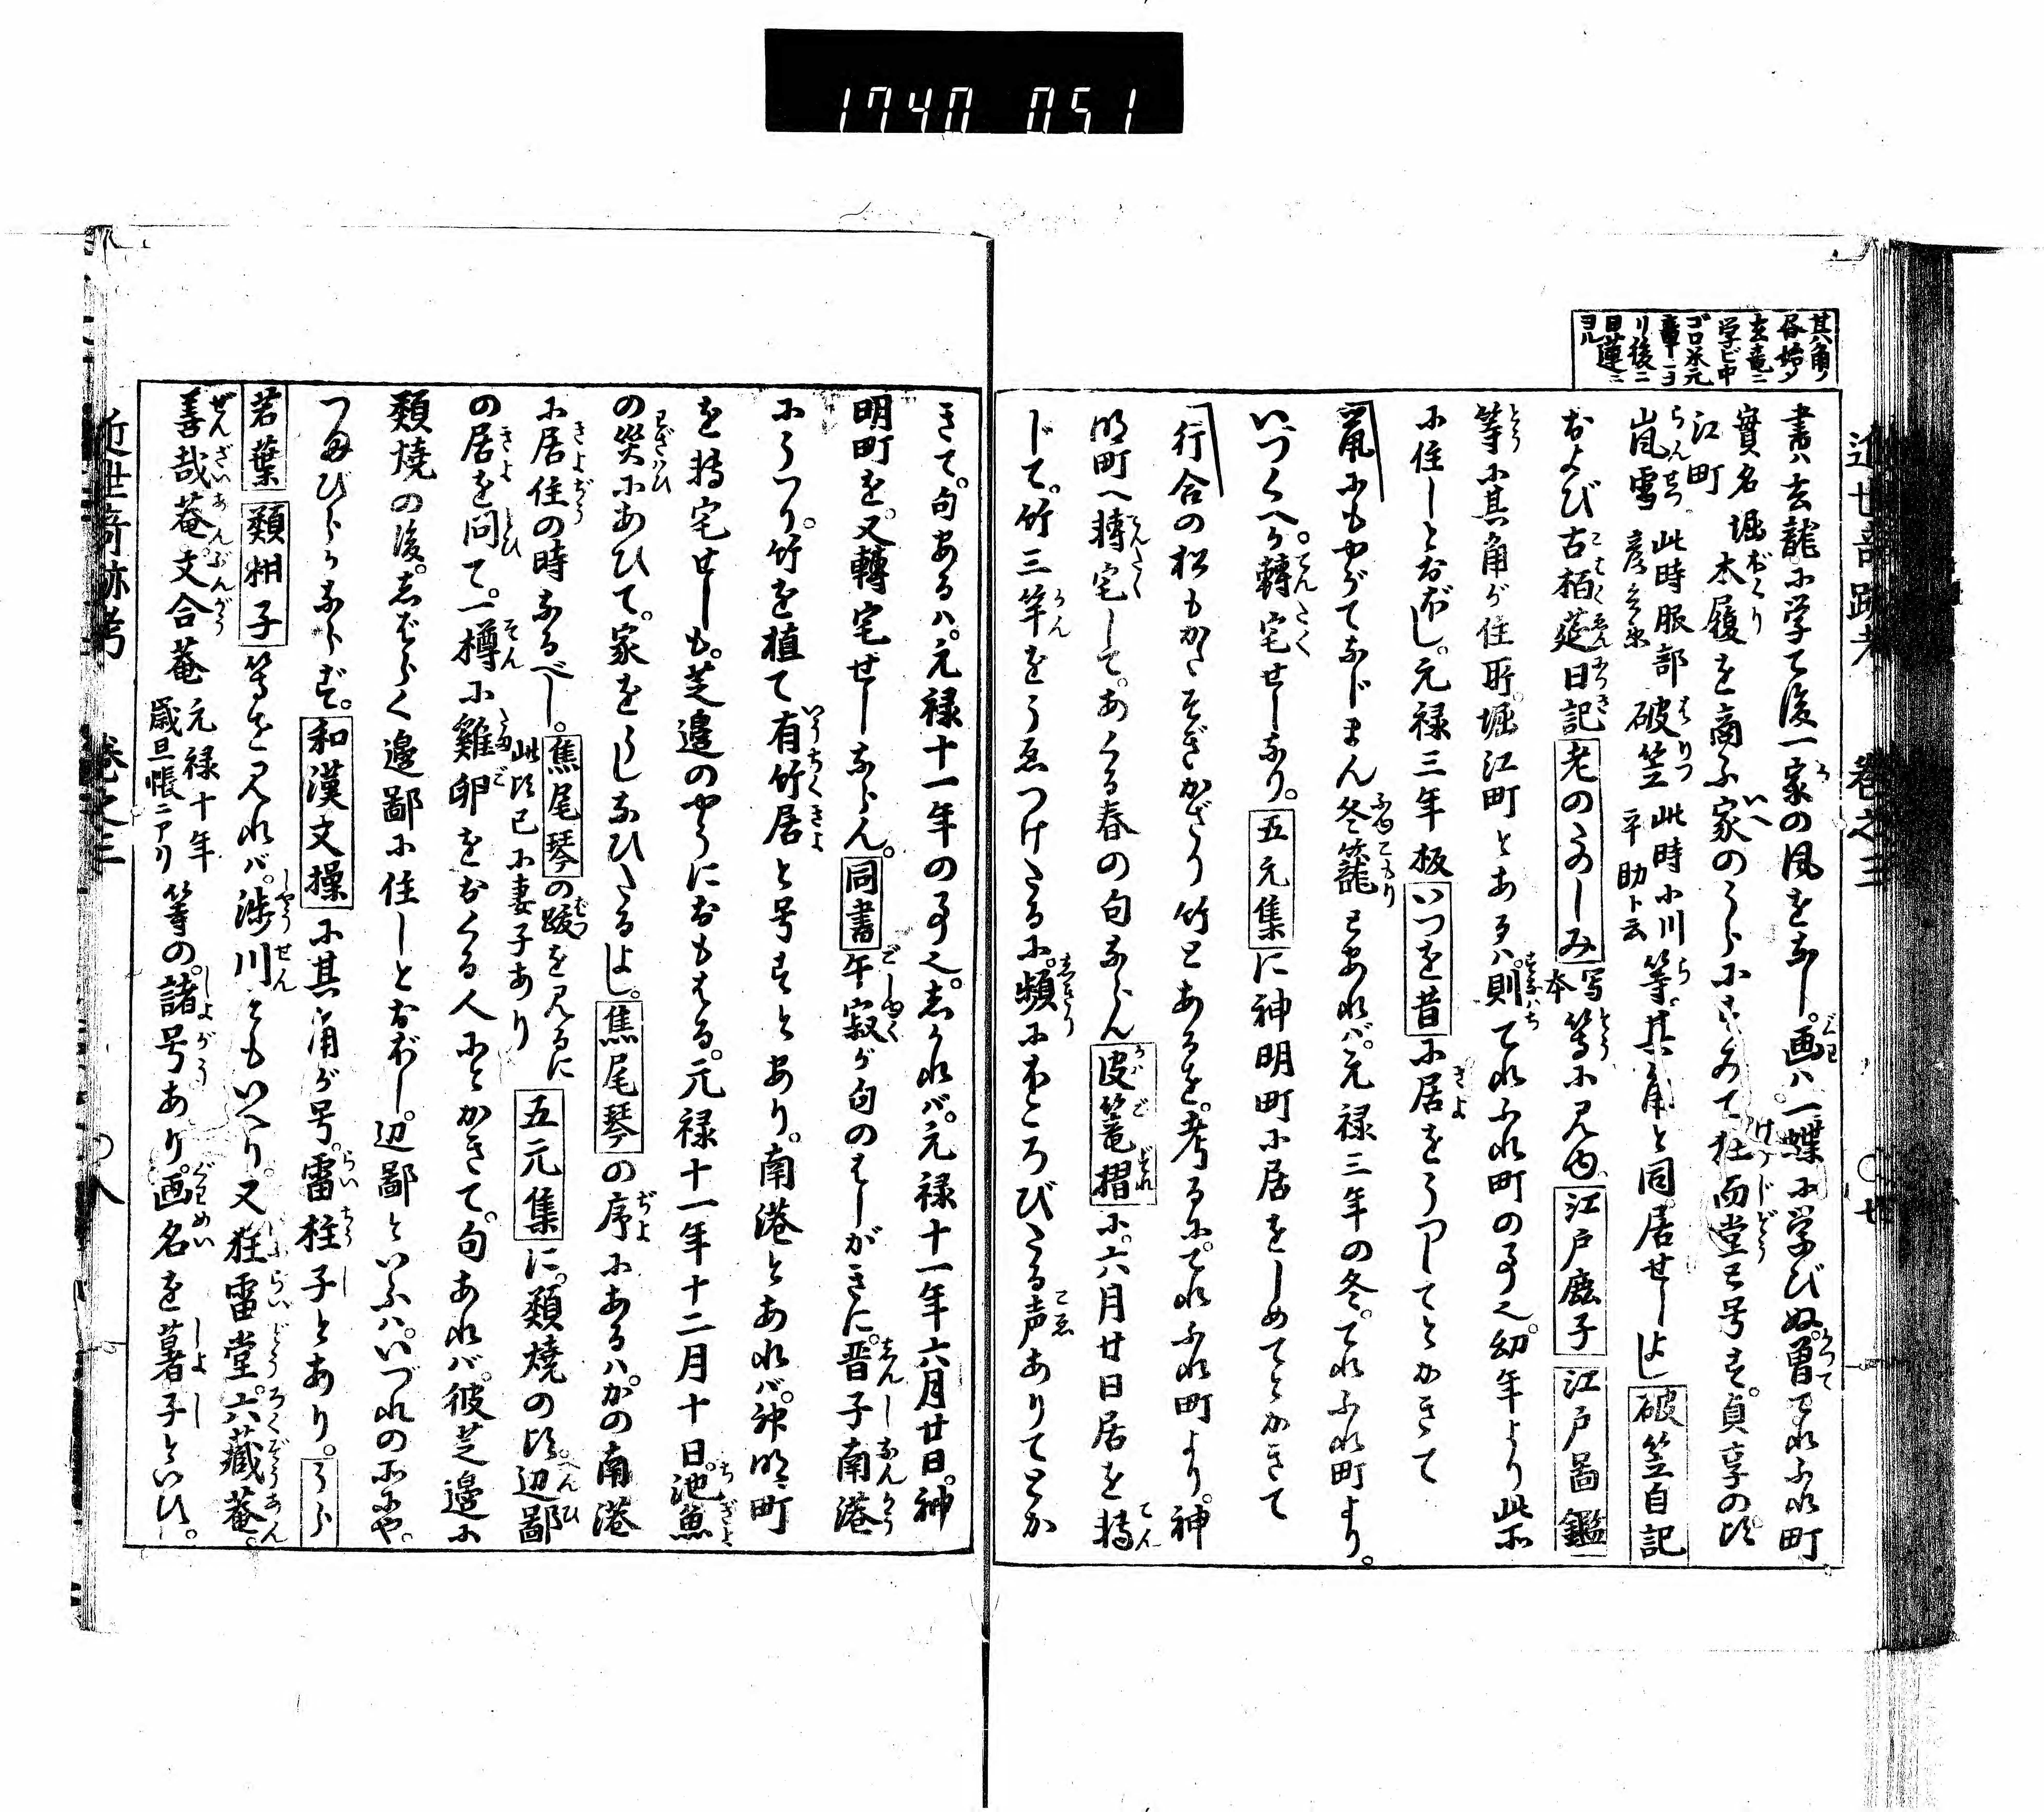 1740 051
近世奇跡考 巻之三 〇廿
其角ノ
唇始メ
玄竜ニ
学ビ中
ゴロ米元
章ニヨ
リ後ニ
日蓮ニ
ヨル
書ハ玄龍に学て後一家の風をなし。画ハ一蝶に学びぬ。曽てれふれ町
江町 實名堀 木履を商ふ家のうらにすみて牡而堂と号す。貞享の比
嵐雪 此時服部彦兵衛 破笠 此時小川平助ト云 等。其角と同居せしよし 破笠自記
および古栢莚日記 老のたのしみ 写本 等に見ゆ 江戸鹿子 江戸啚鑑
等に其角が住所。堀江町とあるハ。則てれふれ町の事也。幼年より此所
に住しとおぼし。元禄三年板 いつを昔 に居をうつしてとかきて
鼠にもやがてなじまん冬籠 とあれバ。元禄三年の冬。てれふれ町より。
いづくへか轉宅せしなり。 五元集 に神明町に居をしめてとかきて
行合の松もかたそぎかざり竹 とあるを。考るに。てれふれ町より。神
明町へ轉宅して。あくる春の句ならん 皮篭摺 に。六月廿日居を轉
じて。竹三竿をうゑつけたるに。頻にほころびたる声ありてとか
きて。句あるハ。元禄十一年の事也。しかれバ。元禄十一年六月廿日。神
明町を。又轉宅せしならん。 同書 午寂が句のはしがきに。晋子南港
にうつり。竹を植て有竹居と号すとあり。南港とあれバ。神明町
を轉宅せしも。芝邉のやうにおもはる。元禄十一年十二月十日。池魚
の災にあひて。家をうしなひたるよし。 焦尾琴 の序にあるハ。かの南港
に居住の時なるべし。 焦尾琴 の跋を見るに此比已に妻子あり 五元集 に。類焼の比。辺鄙
の居を問て。一樽に雞卵をおくる人にとかきて。句あれバ。彼芝邉に
類焼の後。しばらく邉鄙に住しとおぼし。辺鄙といふハ。いづれの所にや。
つまびらかならず。 和漢文操 に其角が号。雷柱子とあり。 うら
若葉 類柑子 等を見れバ。渉川ともいへり。又狂雷堂。六藏菴。
善哉菴。文合菴 元禄十年歳旦帳ニアリ 等の。諸号あり。画名を薯子といひ。
近世奇跡考 巻之三 〇八